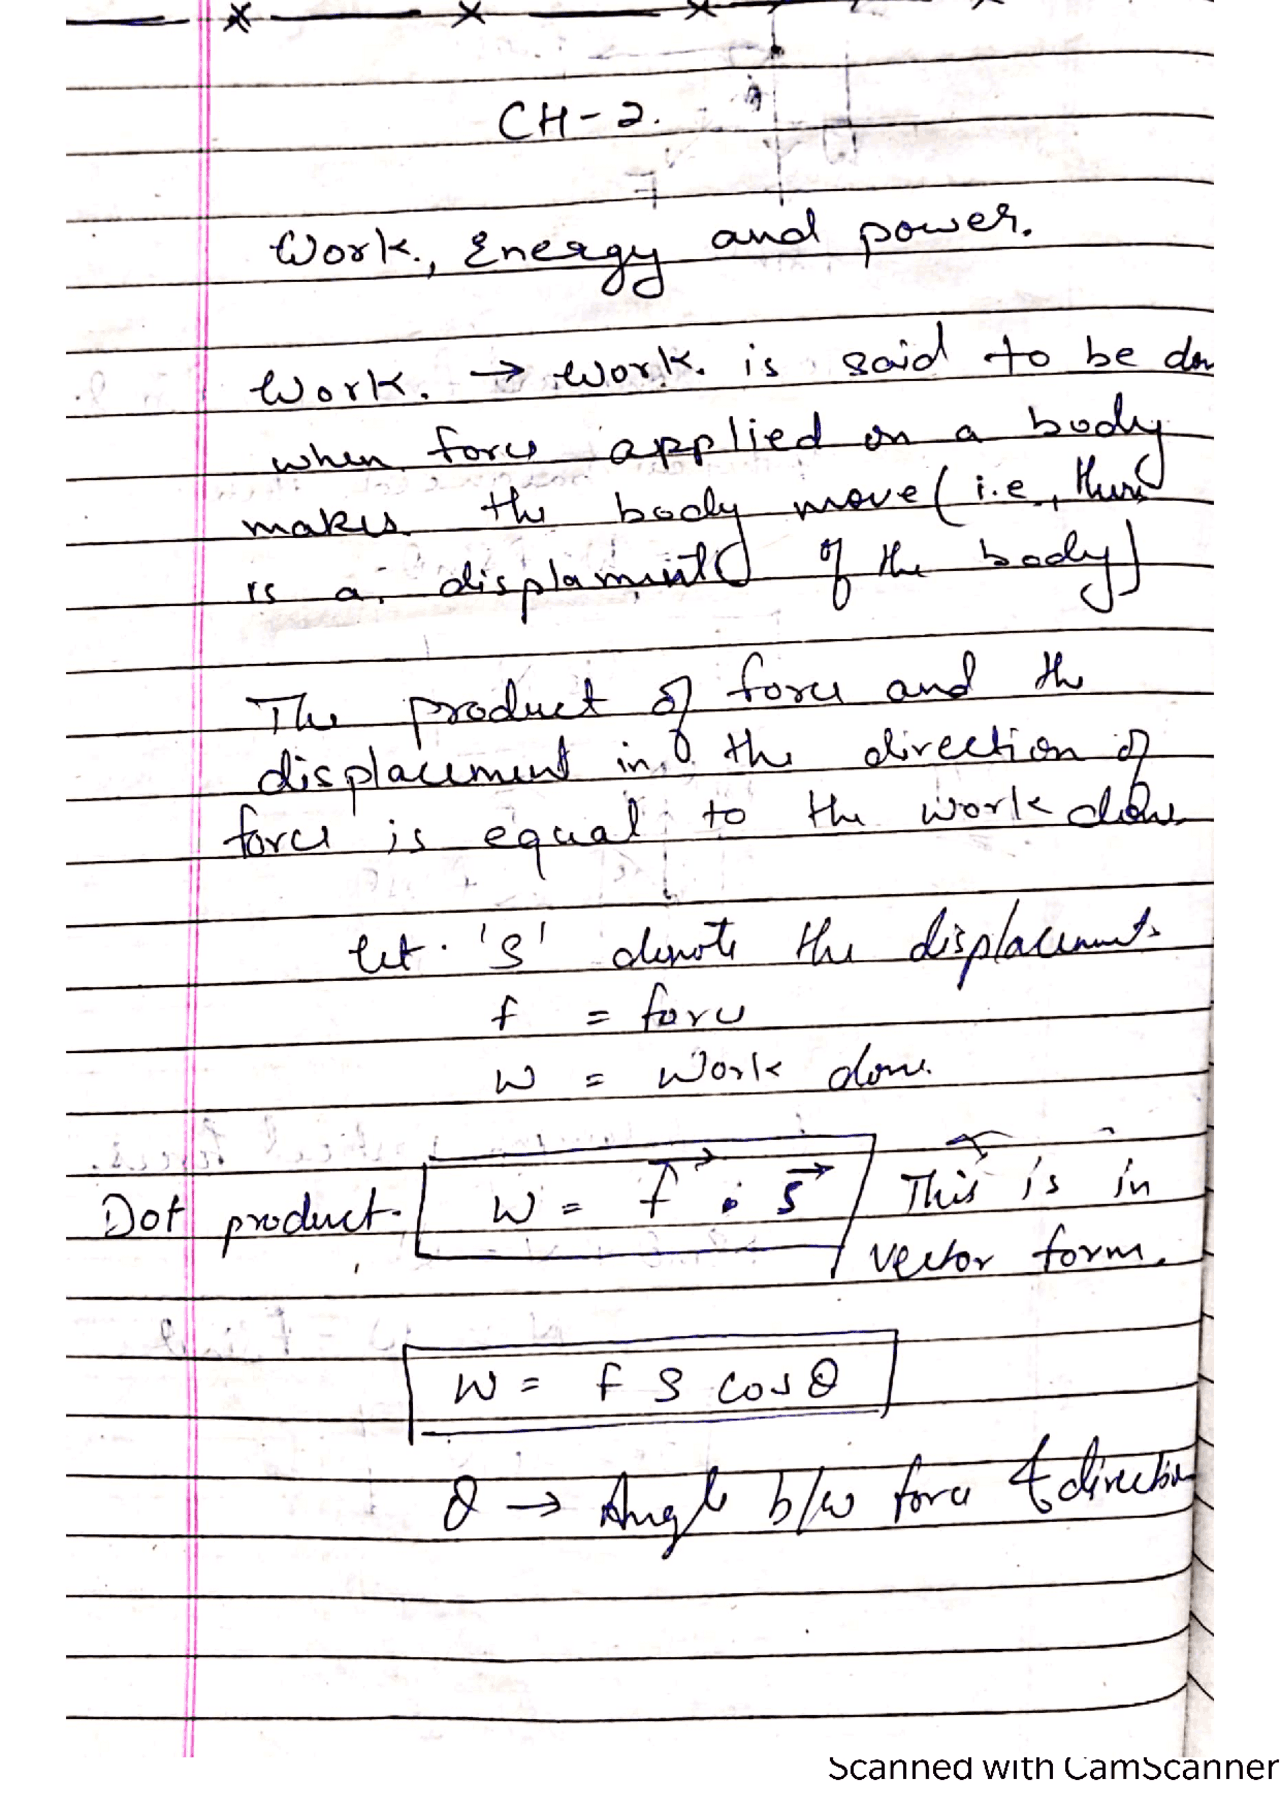 CH-2.
Work., Energy and power.
Work. → Work. is said to be don
when force applied on a body
makes the body move (i.e., there
is a displament of the body)
The product of force and the
displacement in the direction of
force is equal to the work done
let 'S' denote the displacement
f = force
W = Work done.
Dot product. W = f⃗ . s⃗ This is in
vector form.
W = f S cosθ
θ → Angle b/w force & direction
Scanned with CamScanner